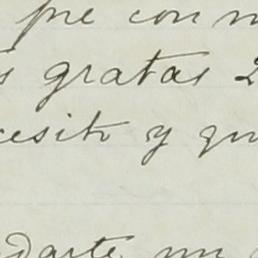 pre con
gratas 2
cesito y qu
darte un